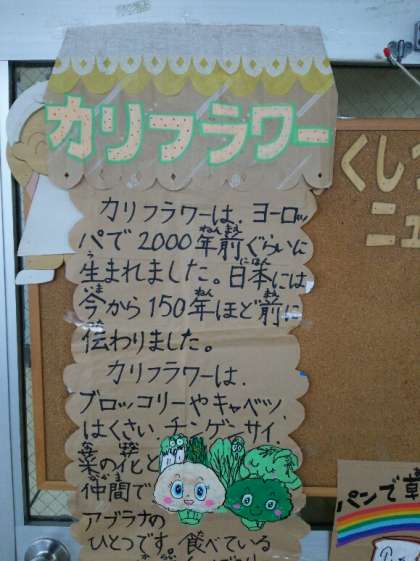 カリフラワー
カリフラワーは、ヨーロッ
パで2000年前ぐらいに
生まれました。日本には
今から150年ほど前に
伝わりました。
カリフラワーは、
ブロッコリーやキャベツ、
はくさい、チンゲーサイ、
菜の花と
仲間で
アブラナの
ひとつです。食べている
くし
ニュ
パンで